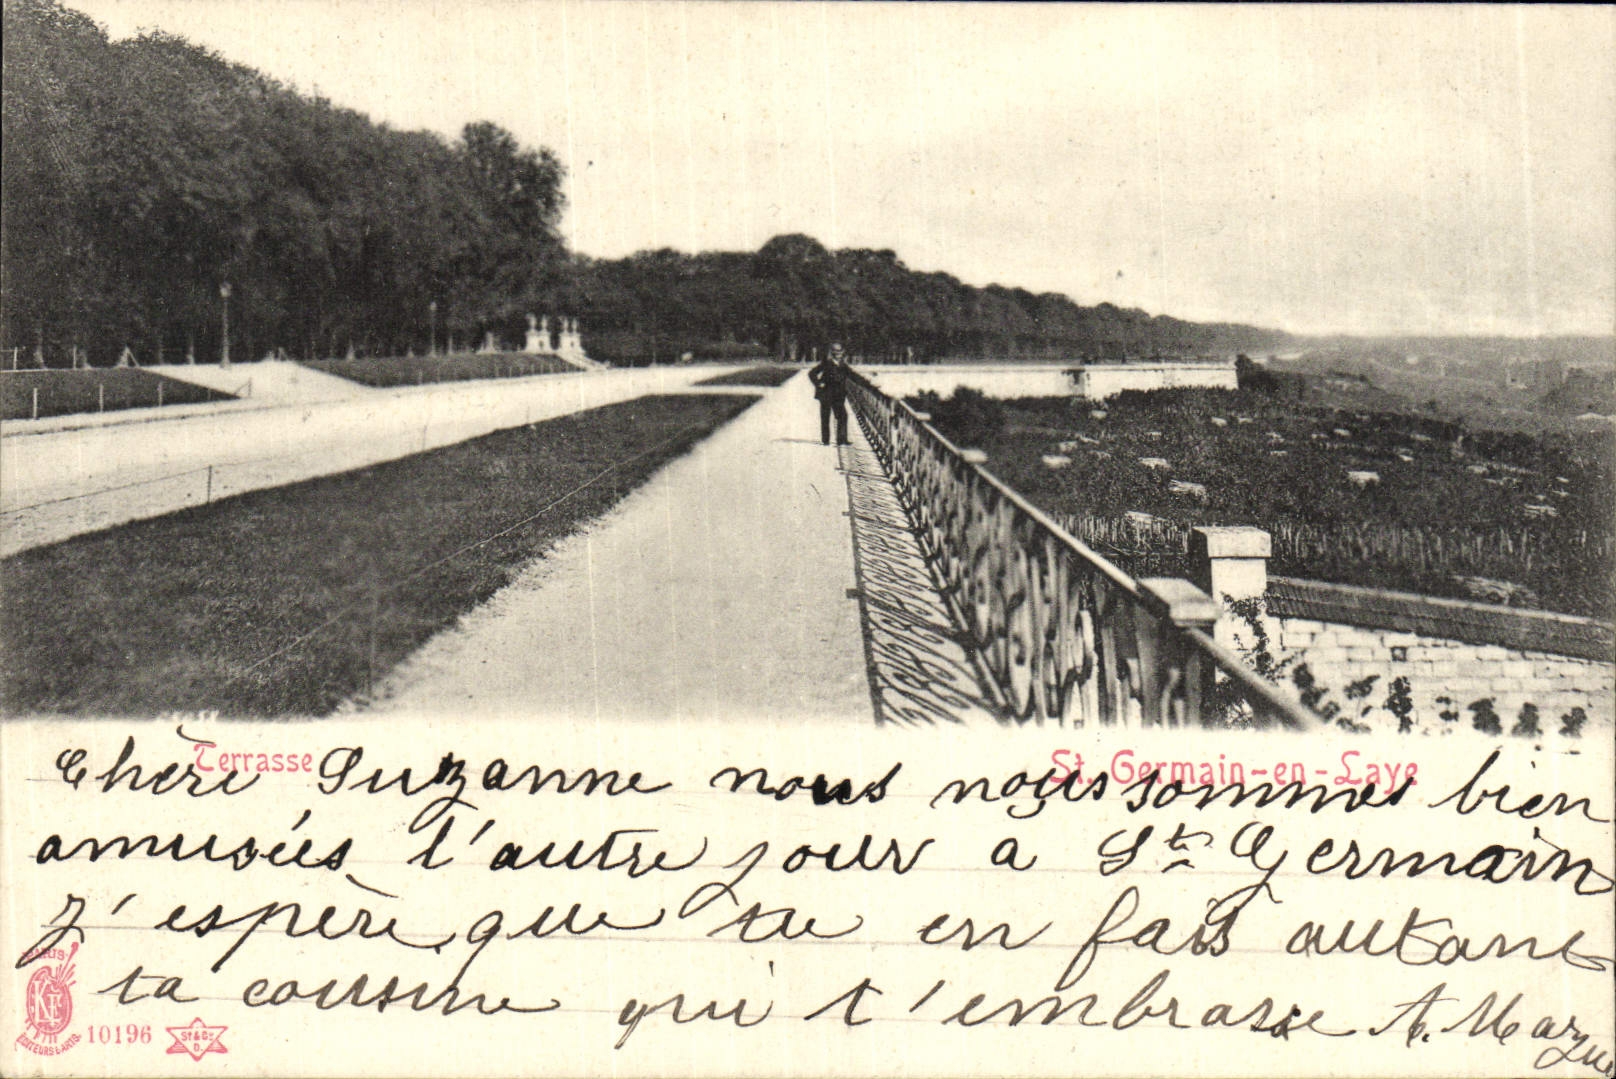 Terrasse St. Germain-en-Laye
Chère Suzanne nous nous sommes bien
amusées l'autre jour a Ste Germain
J'espère que tu en fais autant
ta cousine qui t'embrasse A.
10196 St & Co
D.
KF
EDITEURS D'ARTS.